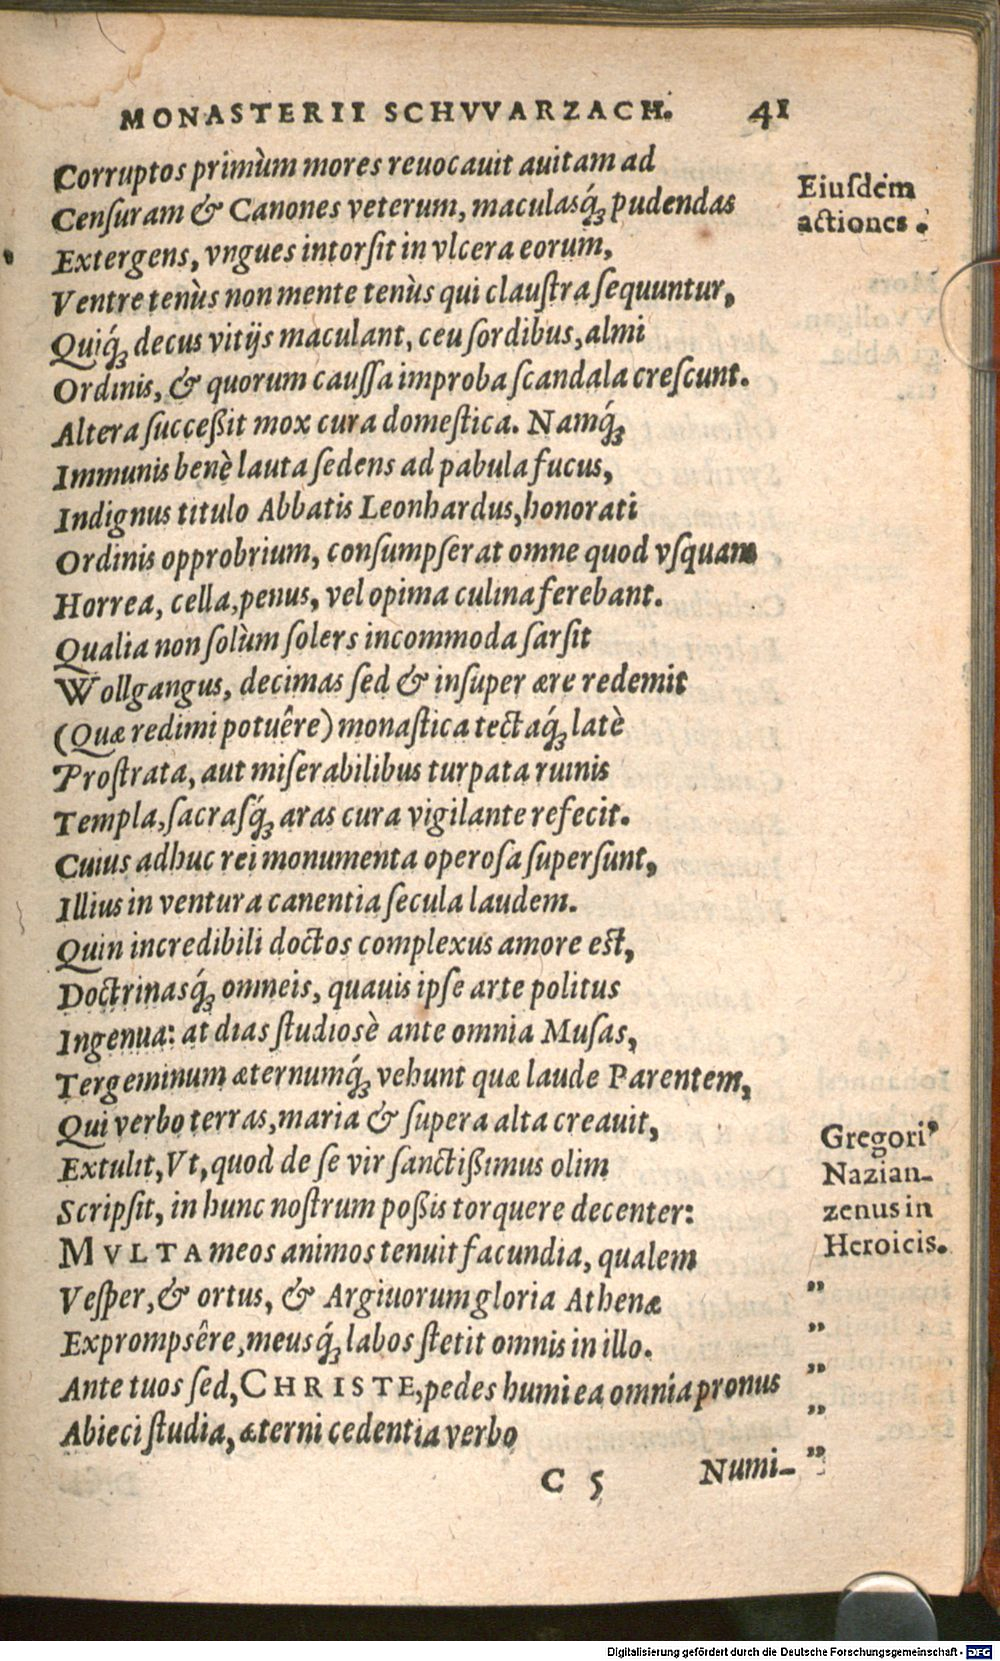 MONASTERII SCHVVARZACH. 41
Corruptos primùm mores reuocauit auitam ad
Censuram & Canones veterum, maculasq́ꝫ pudendas
Eiusdém
actiones.
Extergens, vngues intorsit in vlcera eorum,
Ventre tenùs non mente tenùs qui claustra sequuntur,
Quiq́ꝫ decus vitijs maculant, ceu sordibus, almi
Ordinis, & quorum caussa improba scandala crescunt.
Altera succeßit mox cura domestica. Namq́ꝫ
Immunis benè lauta sedens ad pabula fucus,
Indignus titulo Abbatis Leonhardus, honorati
Ordinis opprobrium, consumpserat omne quod vsquam
Horrea, cella, penus, vel opima culina ferebant.
Qualia non solùm solers incommoda sarsit
Wollgangus, decimas sed & insuper ære redemit
(Quæ redimi potuêre) monastica tectaq́ꝫ latè
Prostrata, aut miserabilibus turpata ruinis
Templa, sacrasq́ꝫ aras cura vigilante refecit.
Cuius adhuc rei monumenta operosa supersunt,
Illius in ventura canentia secula laudem.
Quin incredibili doctos complexus amore est,
Doctrinasq́ꝫ omneis, quauis ipse arte politus
Ingenua: at dias studiosè ante omnia Musas,
Tergeminum æternumq́ꝫ vehunt quæ laude Parentem,
Qui verbo terras, maria & supera alta creauit,
Extulit, Vt, quod de se vir sanctißimus olim
Scripsit, in hunc nostrum poßis torquere decenter:
Gregori⁹
Nazian-
zenus in
Heroicis.
MVLTA meos animos tenuit facundia, qualem
Vesper, & ortus, & Argiuorum gloria Athenæ
„
Exprompsêre, meusq́ꝫ labos stetit omnis in illo.
„
Ante tuos sed, CHRISTE, pedes humi ea omnia pronus
„
Abieci studia, æterni cedentia verbo
„
C 5 Numi-
„
Digitalisierung gefördert durch die Deutsche Forschungsgemeinschaft - DFG